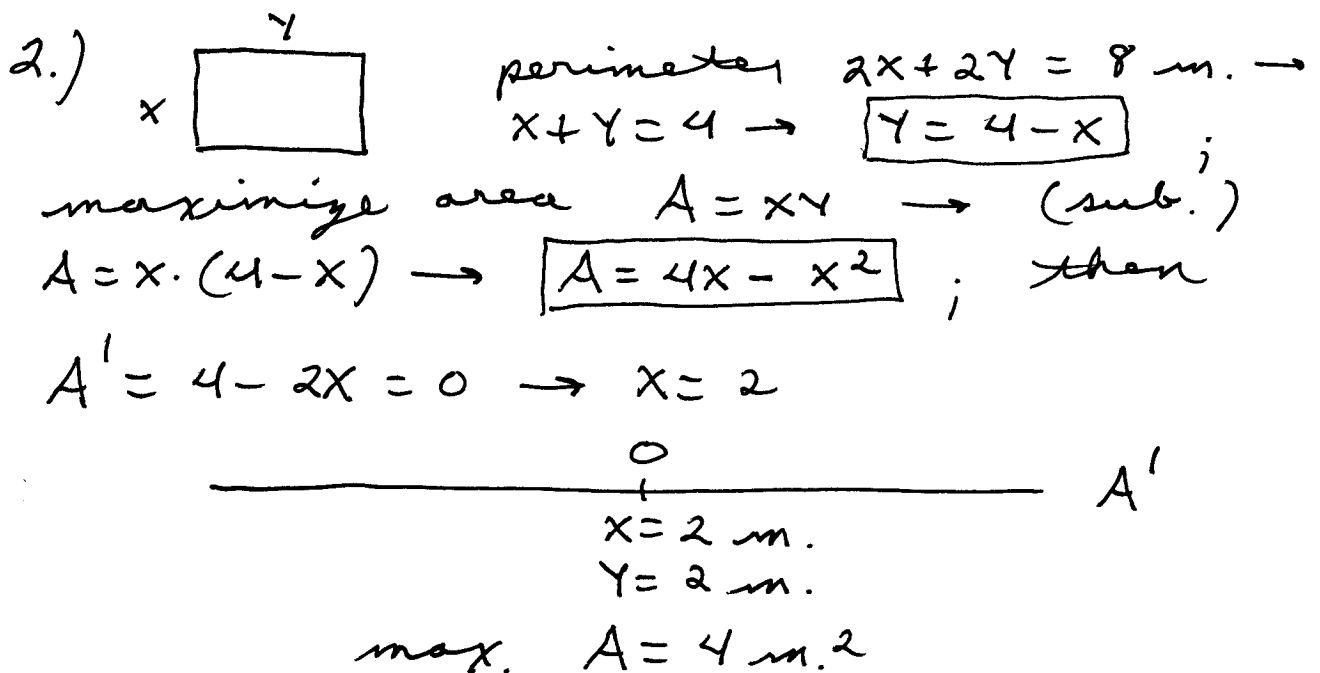 2.) Y perimeter 2X + 2Y = 8 m. →
X X + Y = 4 → Y = 4 - X ;
maximize area A = XY → (sub.)
A = X · (4 - X) → A = 4X - X² ; then
A' = 4 - 2X = 0 → X = 2
0
A'
X = 2 m.
Y = 2 m.
max. A = 4 m.²